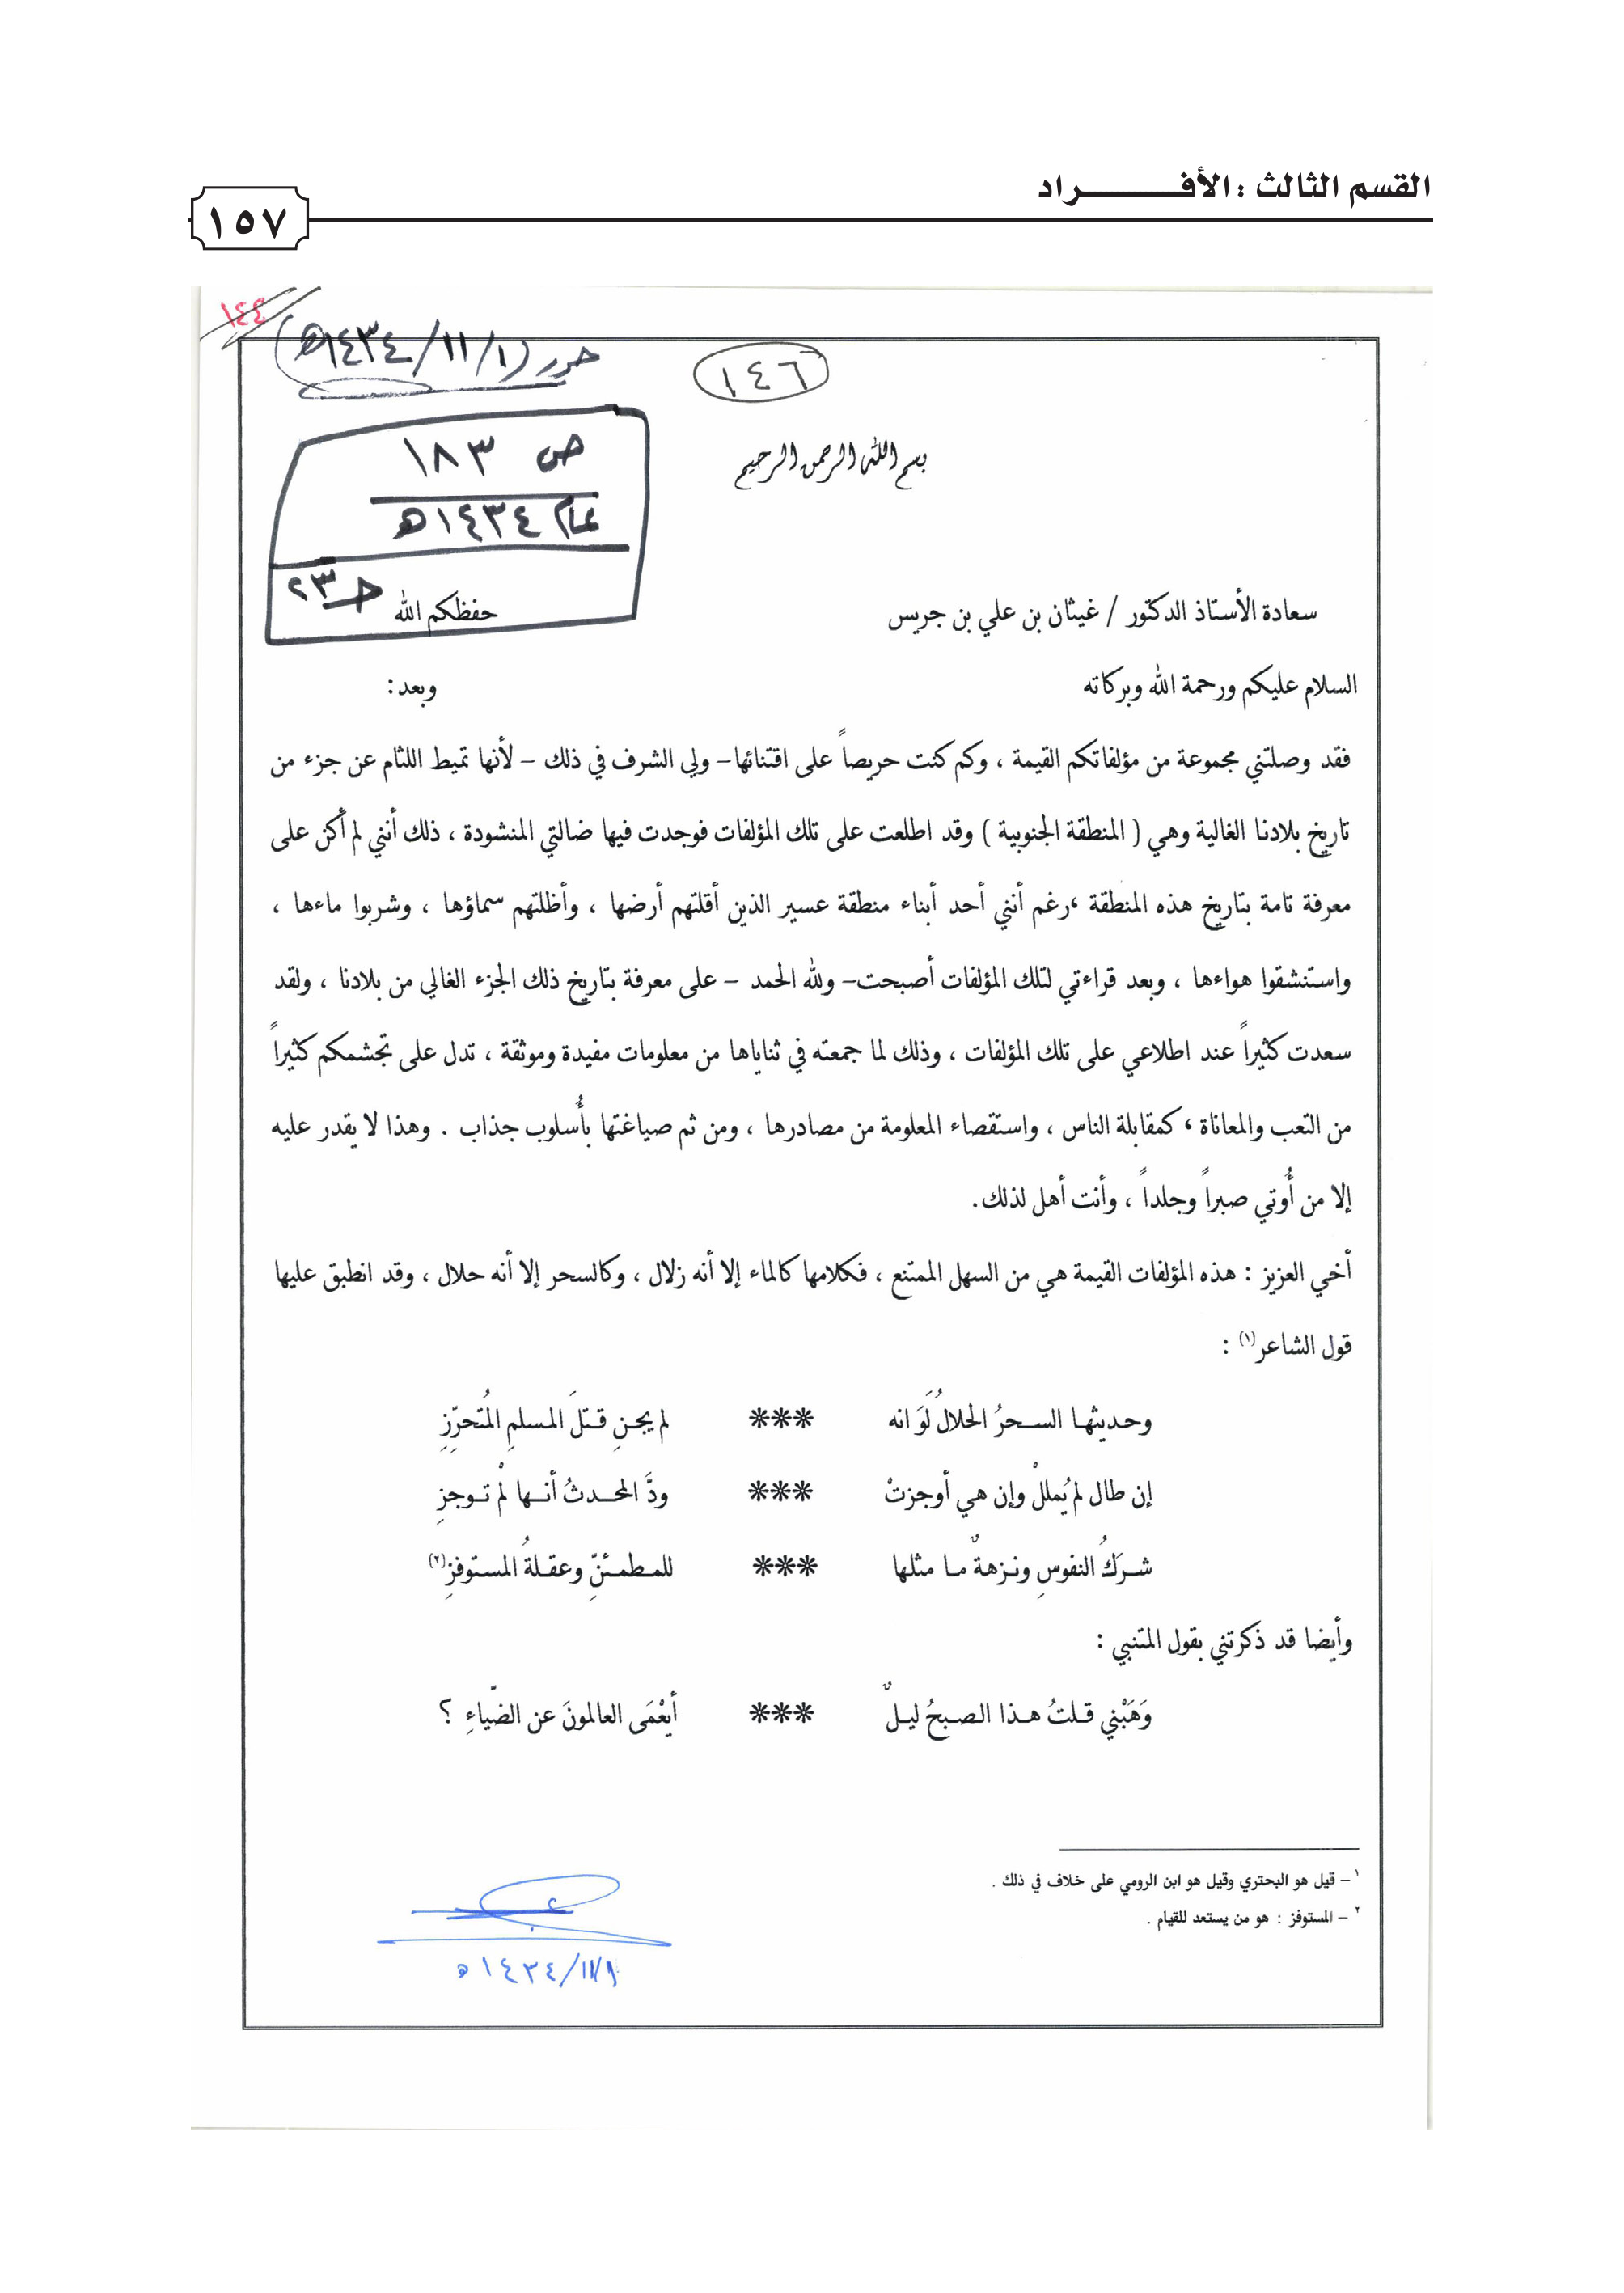 القسم الثالث : الأفــــــــراد
١٥٧
١٤٤
حرر (١/١١/١٤٣٤هـ)
١٤٦
ص ١٨٣
عام ١٤٣٤هـ
حـ ٢٣
بسم الله الرحمن الرحيم
سعادة الأستاذ الدكتور / غيثان بن علي بن جريس حفظكم الله
السلام عليكم ورحمة الله وبركاته وبعد :
فقد وصلتني مجموعة من مؤلفاتكم القيمة ، وكم كنت حريصاً على اقتنائها– ولي الشرف في ذلك – لأنها تميط اللثام عن جزء من
تاريخ بلادنا الغالية وهي ( المنطقة الجنوبية ) وقد اطلعت على تلك المؤلفات فوجدت فيها ضالتي المنشودة ، ذلك أنني لم أكن على
معرفة تامة بتاريخ هذه المنطقة ،رغم أنني أحد أبناء منطقة عسير الذين أقلتهم أرضها ، وأظلتهم سماؤها ، وشربوا ماءها ،
واستنشقوا هواءها ، وبعد قراءتي لتلك المؤلفات أصبحت– ولله الحمد – على معرفة بتاريخ ذلك الجزء الغالي من بلادنا ، ولقد
سعدت كثيراً عند اطلاعي على تلك المؤلفات ، وذلك لما جمعته في ثناياها من معلومات مفيدة وموثقة ، تدل على تجشمكم كثيراً
من التعب والمعاناة ، كمقابلة الناس ، واستقصاء المعلومة من مصادرها ، ومن ثم صياغتها بأُسلوب جذاب . وهذا لا يقدر عليه
إلا من أُوتي صبراً وجلداً ، وأنت أهل لذلك.
أخي العزيز : هذه المؤلفات القيمة هي من السهل الممتنع ، فكلامها كالماء إلا أنه زلال ، وكالسحر إلا أنه حلال ، وقد انطبق عليها
قول الشاعر(١) :
وحديثها السـحرُ الحلالُ لَوَ انه *** لم يجـنِ قـتلَ المـسلمِ المُتحرِّزِ
إن طال لم يُمللْ وإن هي أوجزتْ *** ودَّ المحـدثُ أنـها لمْ تـوجزِ
شـرَكُ النفوسِ ونـزهةٌ مـا مثلها *** للمـطمـئنِّ وعقـلةُ المسـتوفزِ(٢)
وأيضا قد ذكرتني بقول المتنبي :
وَهَبْني قـلتُ هـذا الصـبحُ ليـلٌ *** أيَعْمَى العالمونَ عن الضّياءِ ؟
١– قيل هو البحتري وقيل هو ابن الرومي على خلاف في ذلك .
٢ – المستوفز : هو من يستعد للقيام .
١/١١/١٤٣٤هـ